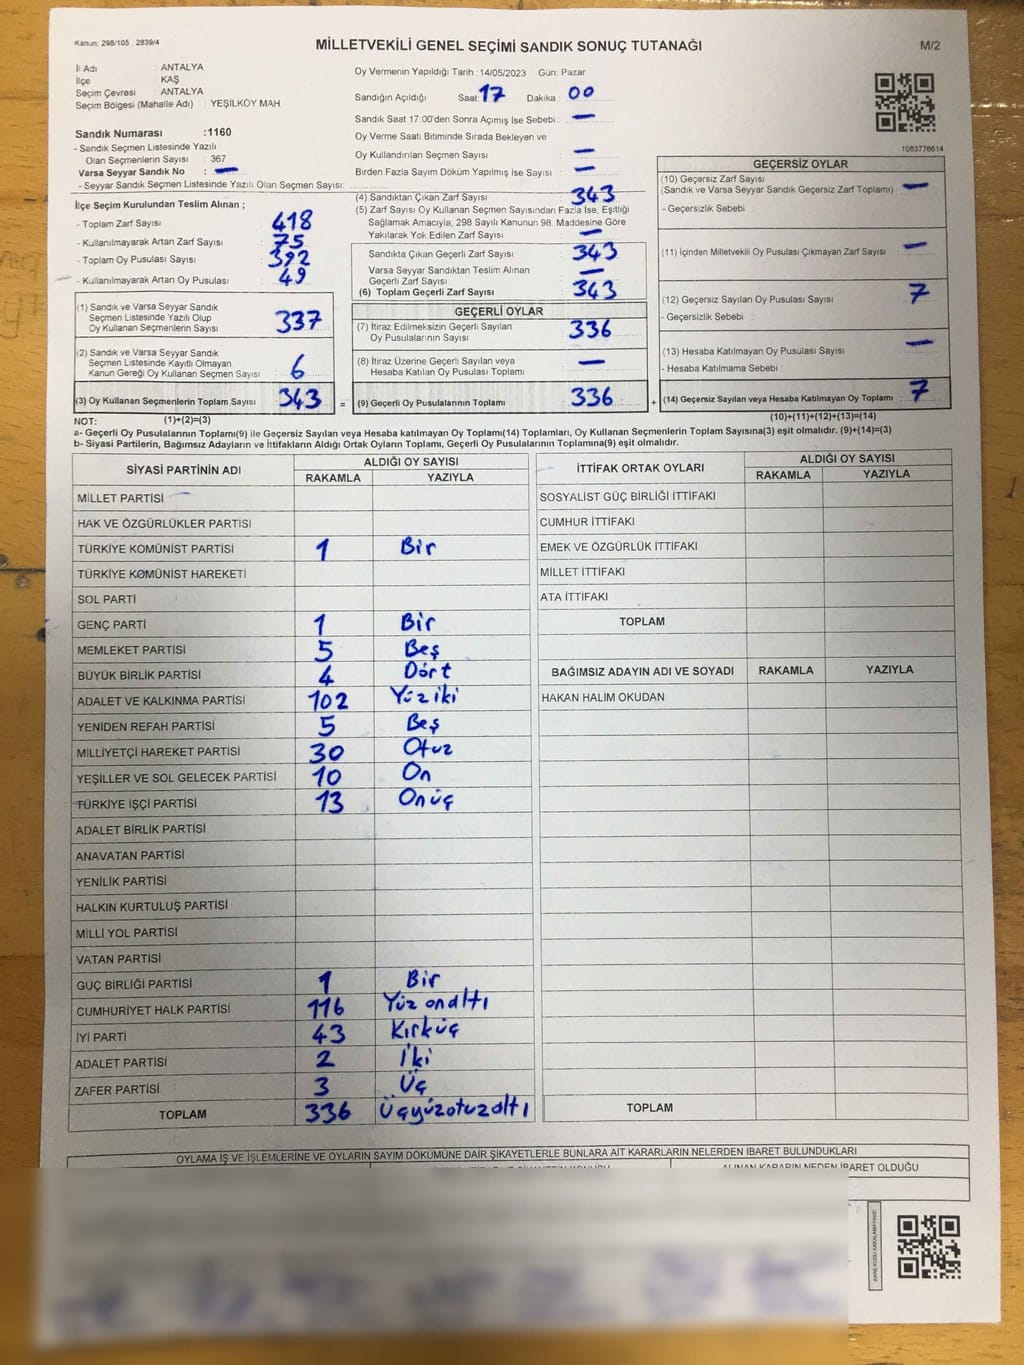 Kanun; 298/105 2839/4
MİLLETVEKİLİ GENEL SEÇİMİ SANDIK SONUÇ TUTANAĞI
M/2
İl Adı : ANTALYA
İlçe : KAŞ
Seçim Çevresi : ANTALYA
Seçim Bölgesi (Mahalle Adı) : YEŞİLKÖY MAH
Sandık Numarası :1160
- Sandık Seçmen Listesinde Yazılı
Olan Seçmenlerin Sayısı : 367
Varsa Seyyar Sandık No : —
- Seyyar Sandık Seçmen Listesinde Yazılı Olan Seçmen Sayısı:
Oy Vermenin Yapıldığı Tarih :14/05/2023 Gün: Pazar
Sandığın Açıldığı Saat: 17 Dakika : 00
Sandık Saat 17:00'den Sonra Açımış İse Sebebi : —
Oy Verme Saati Bitiminde Sırada Bekleyen ve
Oy Kullandırılan Seçmen Sayısı : —
Birden Fazla Sayım Döküm Yapılmış İse Sayısı : —
1083776614
İlçe Seçim Kurulundan Teslim Alınan ;
- Toplam Zarf Sayısı : 418
- Kullanılmayarak Artan Zarf Sayısı : 75
- Toplam Oy Pusulası Sayısı : 392
- Kullanılmayarak Artan Oy Pusulası : 49
(1) Sandık ve Varsa Seyyar Sandık
Seçmen Listesinde Yazılı Olup
Oy Kullanan Seçmenlerin Sayısı : 337
(2) Sandık ve Varsa Seyyar Sandık
Seçmen Listesinde Kayıtlı Olmayan
Kanun Gereği Oy Kullanan Seçmen Sayısı : 6
(3) Oy Kullanan Seçmenlerin Toplam Sayısı : 343
(4) Sandıktan Çıkan Zarf Sayısı : 343
(5) Zarf Sayısı Oy Kullanan Seçmen Sayısından Fazla İse, Eşitliği
Sağlamak Amacıyla, 298 Sayılı Kanunun 98. Maddesine Göre
Yakılarak Yok Edilen Zarf Sayısı : —
Sandıkta Çıkan Geçerli Zarf Sayısı : 343
Varsa Seyyar Sandıktan Teslim Alınan
Geçerli Zarf Sayısı : —
(6) Toplam Geçerli Zarf Sayısı : 343
GEÇERLİ OYLAR
(7) İtiraz Edilmeksizin Geçerli Sayılan
Oy Pusulalarının Sayısı : 336
(8) İtiraz Üzerine Geçerli Sayılan veya
Hesaba Katılan Oy Pusulası Toplamı : —
= (9) Geçerli Oy Pusulalarının Toplamı : 336
GEÇERSİZ OYLAR
(10) Geçersiz Zarf Sayısı
(Sandık ve Varsa Seyyar Sandık Geçersiz Zarf Toplamı) : —
- Geçersizlik Sebebi :
(11) İçinden Milletvekili Oy Pusulası Çıkmayan Zarf Sayısı : —
(12) Geçersiz Sayılan Oy Pusulası Sayısı : 7
- Geçersizlik Sebebi :
(13) Hesaba Katılmayan Oy Pusulası Sayısı : —
- Hesaba Katılmama Sebebi :
+ (14) Geçersiz Sayılan veya Hesaba Katılmayan Oy Toplamı : 7
NOT: (1)+(2)=(3)
(10)+(11)+(12)+(13)=(14)
a- Geçerli Oy Pusulalarının Toplamı(9) ile Geçersiz Sayılan veya Hesaba katılmayan Oy Toplamı(14) Toplamları, Oy Kullanan Seçmenlerin Toplam Sayısına(3) eşit olmalıdır. (9)+(14)=(3)
b- Siyasi Partilerin, Bağımsız Adayların ve İttifakların Aldığı Ortak Oyların Toplamı, Geçerli Oy Pusulalarının Toplamına(9) eşit olmalıdır.
SİYASİ PARTİNİN ADI ALDIĞI OY SAYISI
RAKAMLA YAZIYLA
MİLLET PARTİSİ
HAK VE ÖZGÜRLÜKLER PARTİSİ
TÜRKİYE KOMÜNİST PARTİSİ 1 Bir
TÜRKİYE KOMÜNİST HAREKETİ
SOL PARTİ
GENÇ PARTİ 1 Bir
MEMLEKET PARTİSİ 5 Beş
BÜYÜK BİRLİK PARTİSİ 4 Dört
ADALET VE KALKINMA PARTİSİ 102 Yüz iki
YENİDEN REFAH PARTİSİ 5 Beş
MİLLİYETÇİ HAREKET PARTİSİ 30 Otuz
YEŞİLLER VE SOL GELECEK PARTİSİ 10 On
TÜRKİYE İŞÇİ PARTİSİ 13 Onüç
ADALET BİRLİK PARTİSİ
ANAVATAN PARTİSİ
YENİLİK PARTİSİ
HALKIN KURTULUŞ PARTİSİ
MİLLİ YOL PARTİSİ
VATAN PARTİSİ
GÜÇ BİRLİĞİ PARTİSİ 1 Bir
CUMHURİYET HALK PARTİSİ 116 Yüz onaltı
İYİ PARTİ 43 Kırküç
ADALET PARTİSİ 2 İki
ZAFER PARTİSİ 3 Üç
TOPLAM 336 Üçyüzotuzaltı
İTTİFAK ORTAK OYLARI ALDIĞI OY SAYISI
RAKAMLA YAZIYLA
SOSYALİST GÜÇ BİRLİĞİ İTTİFAKI
CUMHUR İTTİFAKI
EMEK VE ÖZGÜRLÜK İTTİFAKI
MİLLET İTTİFAKI
ATA İTTİFAKI
TOPLAM
BAĞIMSIZ ADAYIN ADI VE SOYADI RAKAMLA YAZIYLA
HAKAN HALİM OKUDAN
TOPLAM
OYLAMA İŞ VE İŞLEMLERİNE VE OYLARIN SAYIM DÖKÜMÜNE DAİR ŞİKAYETLERLE BUNLARA AİT KARARLARIN NELERDEN İBARET BULUNDUKLARI
ALINAN KARARIN NEDEN İBARET OLDUĞU
KARE KODU KARALAMAYINIZ!